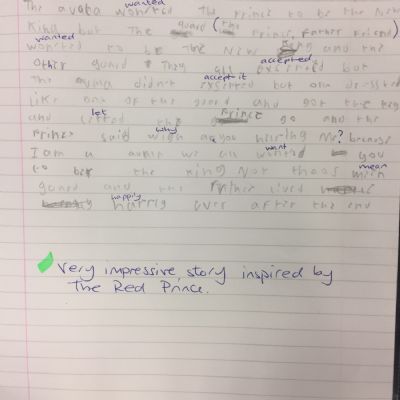 wanted
The avata wonsted the Prince to be the New
King but the guard (the Prince, Father Friend)
wanted
wonsted to be the New King and the
accepted
Other guard They all exserted but
accept it
The didnt exserted but one dressted
like one of the guard and got the key
let Prince
and letted the go and the
why
Prince said wigh are you helping Me? because
want
I am a we all wonted you
mean
to be the King Not thoos mien
guard and the Prince lived
happily
harrly ever after the end
Very impressive story inspired by
The Red Prince.